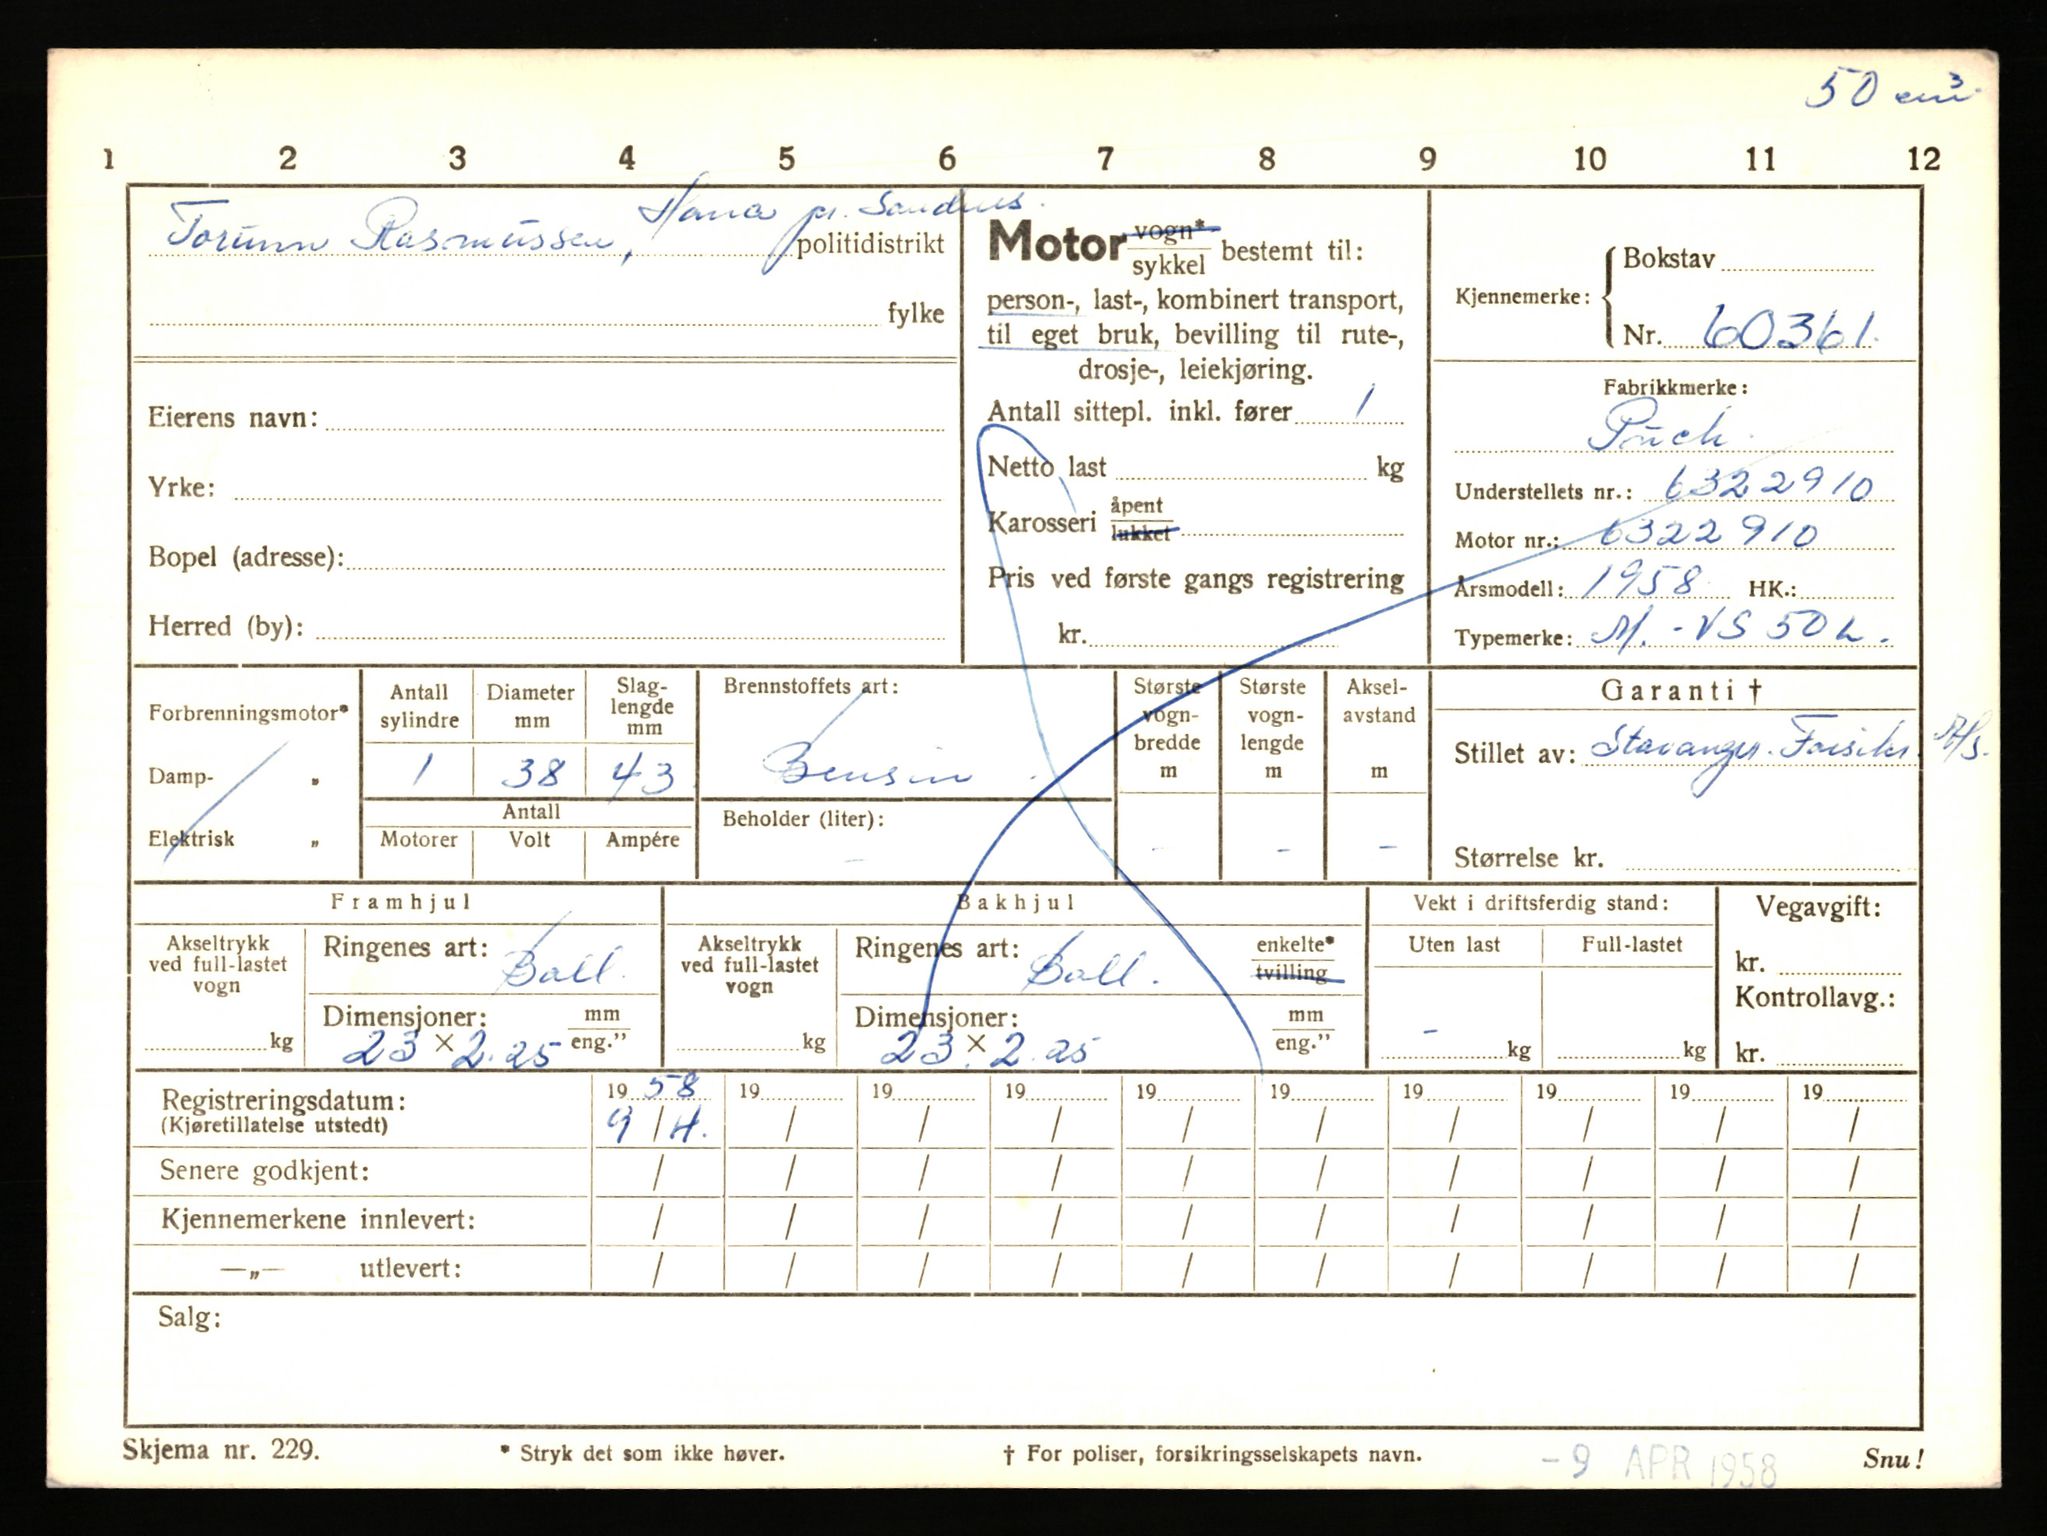 50 cm³
1 2 3 4 5 6 7 8 9 10 11 12
Torunn Rasmussen, Hana pr. Sandnes.
politidistrikt
fylke
Eierens navn:
Yrke:
Bopel (adresse):
Herred (by):
Motor vogn* sykkel bestemt til:
person-, last-, kombinert transport,
til eget bruk, bevilling til rute-,
drosje-, leiekjøring.
Antall sittepl. inkl. fører 1
Netto last kg
Karosseri åpent lukket
Pris ved første gangs registrering
kr.
Kjennemerke: Bokstav
Nr. 60361.
Fabrikkmerke:
Puch.
Understellets nr.: 6322910
Motor nr.: 6322910
Årsmodell: 1958 HK.:
Typemerke: M. - VS 50 L.
Forbrenningsmotor*
Damp- „
Elektrisk „
Antall sylindre
Diameter mm
Slag-lengde mm
1 38 43
Antall
Motorer Volt Ampére
Brennstoffets art:
Bensin
Beholder (liter):
-
Største vogn-bredde m
-
Største vogn-lengde m
-
Aksel-avstand m
-
Garanti †
Stillet av: Stavanger Forsikr. A/S.
Størrelse kr.
Framhjul
Akseltrykk ved full-lastet vogn
kg
Ringenes art: Ball.
Dimensjoner: mm eng.”
23 x 2.25
Bakhjul
Akseltrykk ved full-lastet vogn
kg
Ringenes art: Ball.
enkelte* tvilling
Dimensjoner: mm eng.”
23 x 2.25
Vekt i driftsferdig stand:
Uten last Full-lastet
- kg kg
Vegavgift:
kr.
Kontrollavg.:
kr.
Registreringsdatum: 19 58 19 19 19 19 19 19 19 19 19
(Kjøretillatelse utstedt) 9/4. / / / / / / / / /
Senere godkjent: / / / / / / / / / /
Kjennemerkene innlevert: / / / / / / / / / /
—„— utlevert: / / / / / / / / / /
Salg:
Skjema nr. 229.
* Stryk det som ikke høver.
† For poliser, forsikringsselskapets navn.
-9 APR 1958
Snu!